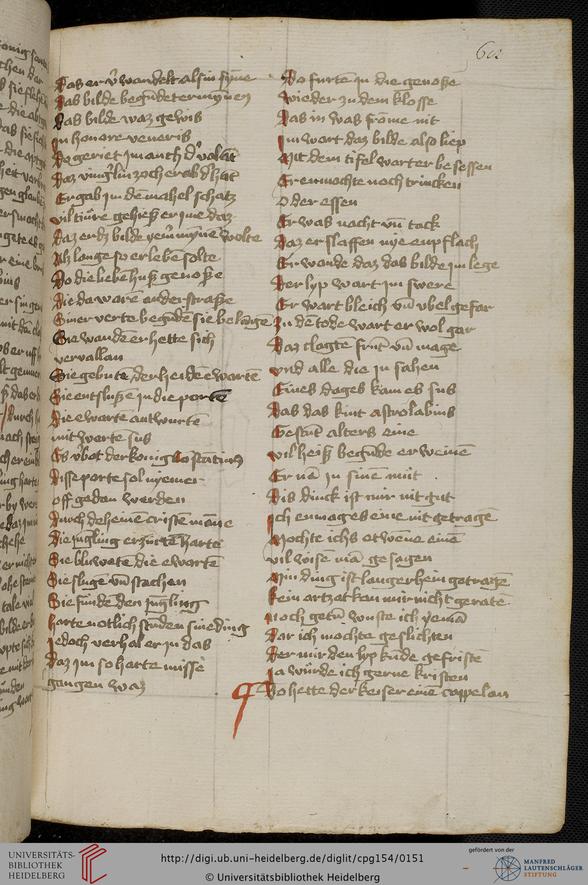 Das er v̓wandelt als in syme
Das bilde begūde er mynen
Das bilde waz gewis
In honore veneris
Do geriet im auch
Daz ving'lin zoch er ab d' hāt
Er gab im den mahel schatz
vil ture gehiesz er yme daz
Daz er dz bilde ymm̄ mynne wolte
Als lange so er leben solte
Do die liebe husz genosse
Die da warē an der strasse
Siner verte begūdē sie belange
Sie wandē er hette sich
vervallen
Sie gebutē der heidē ewartē
Sie entslussē in die portē
Die ewarte antwurtē
mit worte sus
Es v̓bot der konig
Disse porte sol nyemer
off gedan werden
Durch deheinē cristē māne
Die jungling erzurtē harte
Sie bluwetē die ewartē
Sie slugē vn̄ stachen
Sie fundē den jungling
harte notlich studen sine ding
Jedoch verhal er in das
Daz im so harte misse
gangen waz
60
Do furtē in die genosse
wieder zu dem klosse
Das in was frome nit
Im wart daz bilde also liep
Mit dem tifel wart er besessen
Er enmochte noch trincken
Oder essen
Er was nacht vn̄ tack
Daz er slaffen nye enpflach
Er wande daz das bilde im lege
Der lyp wart im swere
Er wart bleich vn̄ vbel gefar
Zu dē tode wart er wol gar
Daz clagte frūt vn̄ mage
vnd alle die in sahen
Eines dages kam es sus
Das das kint astrolabius
Gestūt alters eine
vil heisz begūde er weinē
Er nā in sinē mūt
Dis dinck ist mir nit gut
Ich enmag es eine nit getragē
Mochte ichs etwene eine
vil wisē mā gesagen
Min ding ist langer hein getragē
kein artzat kan mir nicht geratē
noch getū wuste ich yemā
Dar ich mochte geflichten
Der mir den lyp kūde gefristē
Ja wurde ich gerne kristen
Do hette der keiser einē cappelan
UNIVERSITÄTS-
BIBLIOTHEK
HEIDELBERG
http://digi.ub.uni-heidelberg.de/diglit/cpg154/0151
© Universitätsbibliothek Heidelberg
gefördert von der
MANFRED
LAUTENSCHLÄGER
STIFTUNG